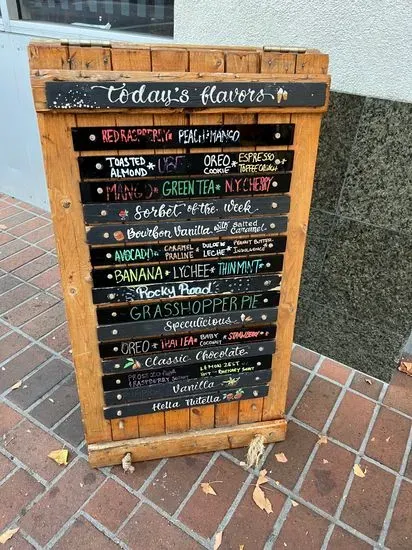 Today's flavors
RED RASPBERRY PEACH*MANGO
TOASTED ALMOND * UBE * OREO COOKIE * ESPRESSO TOFFEE CRUNCH
MANGO * GREEN TEA * N.Y. CHERRY
Sorbet of the Week
Bourbon Vanilla with Salted Caramel
AVOCADO * CARAMEL PRALINE * DULCE de LECHE * PEANUT BUTTER
BANANA * LYCHEE * THIN MINT *
Rocky Road
GRASSHOPPER PIE
Speculicious
OREO * THAI TEA * BABY COCONUT * STRAWBERRY *
Classic Chocolate
LEMON ZEST
RASPBERRY
Vanilla
PROSECCO
Hella Nutella